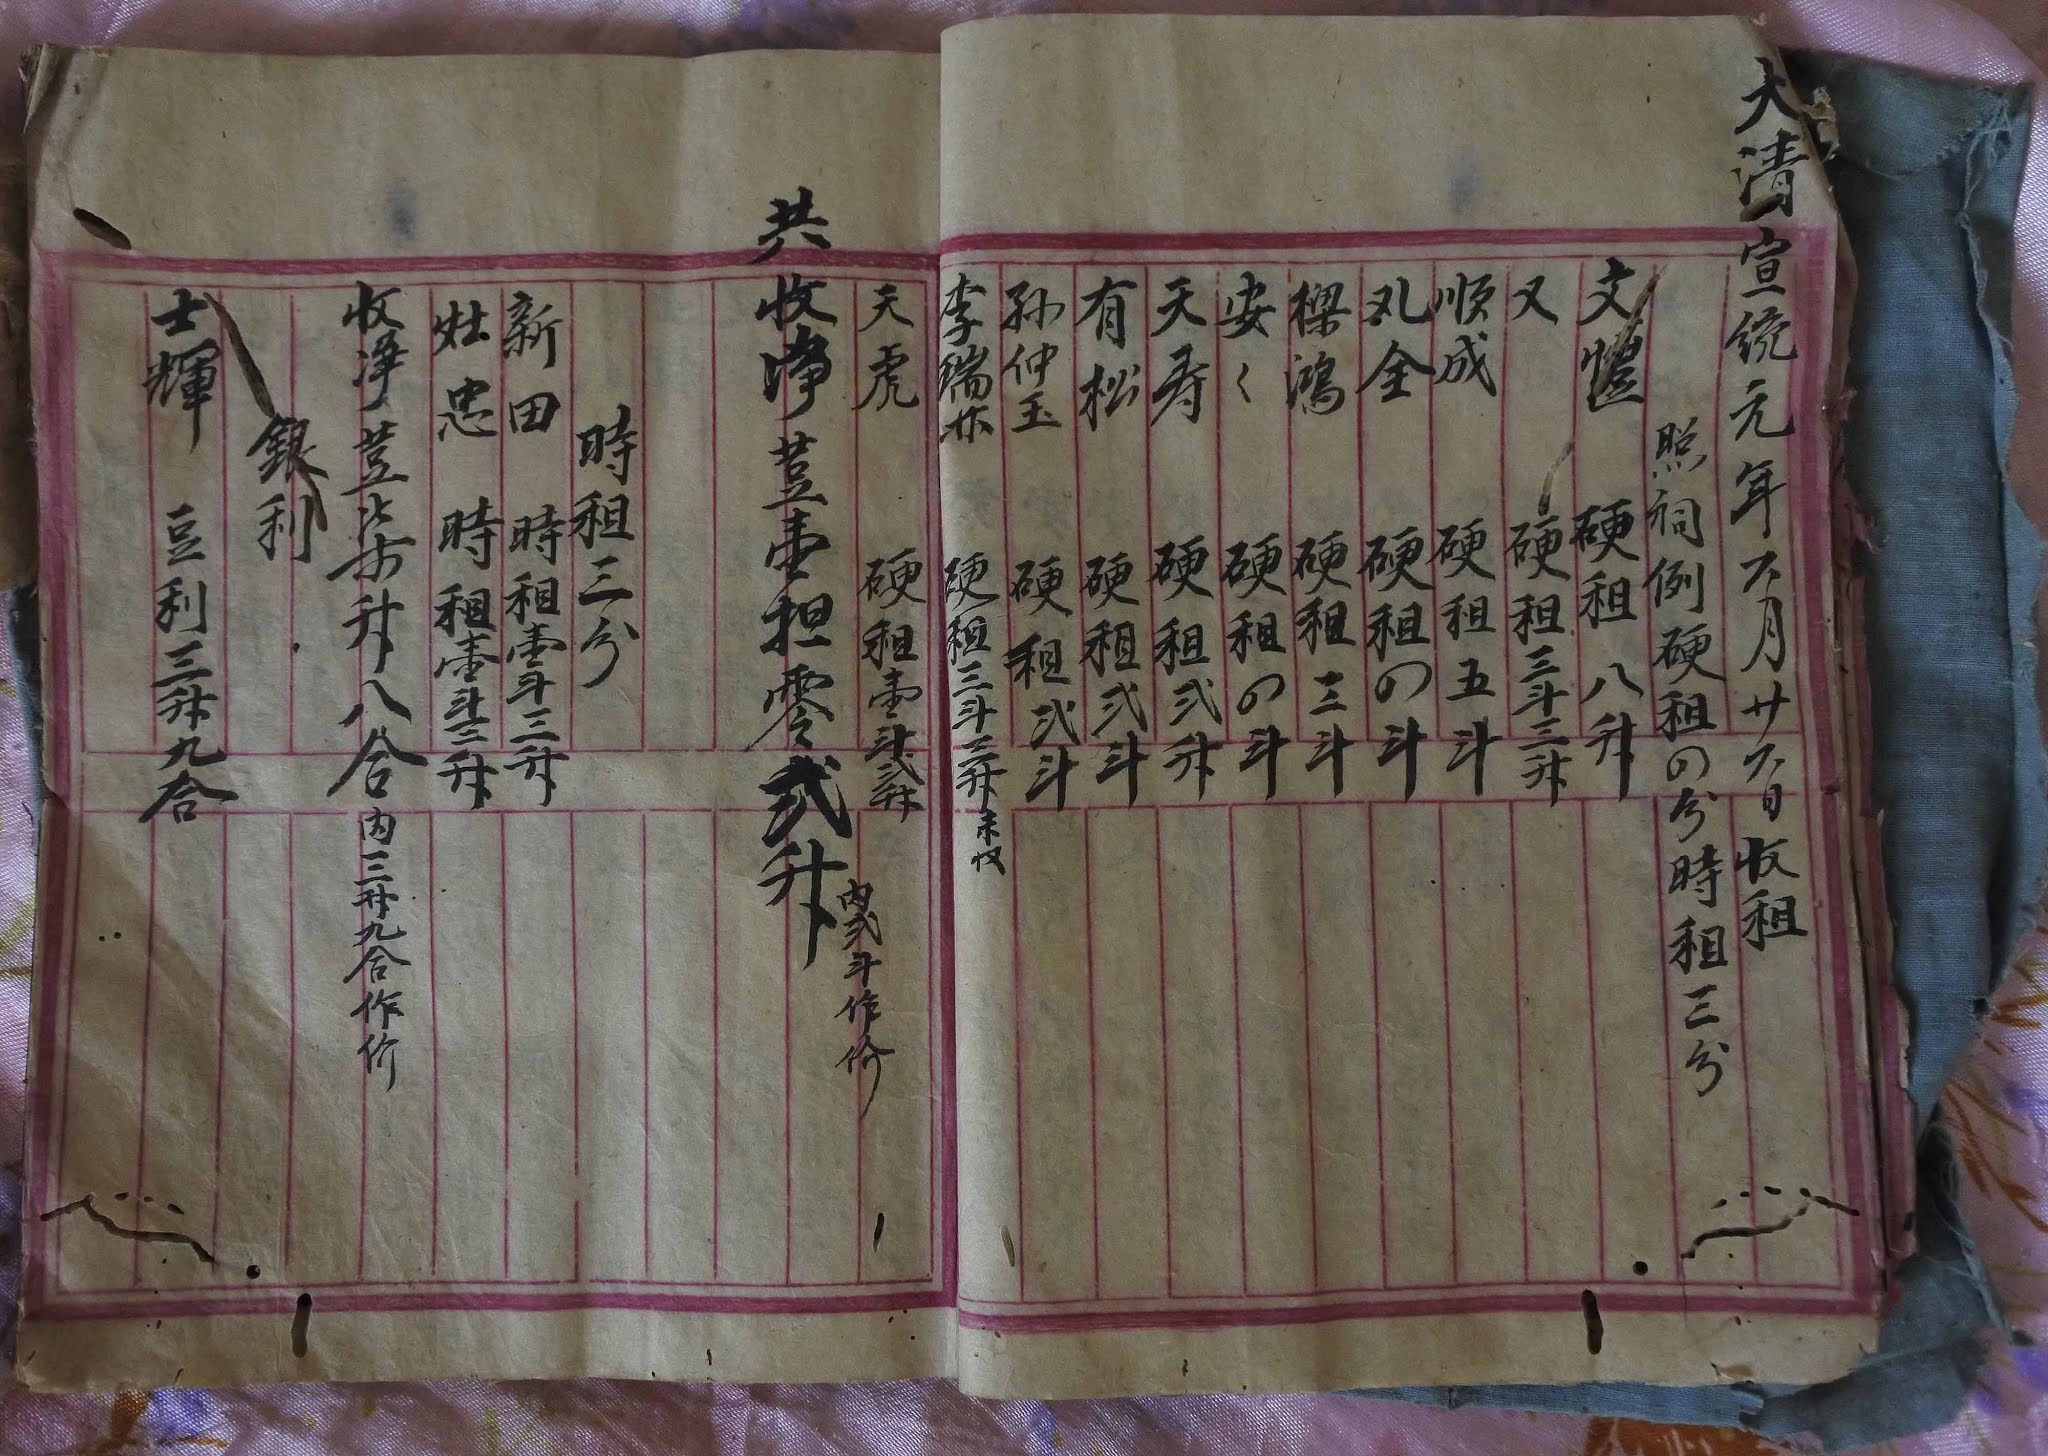 大清宣統元年六月廿六日收租
照祠例硬租四分時租三分
文愷 硬租八升
又 硬租三斗三升
順成 硬租五斗
礼全 硬租四斗
樑鴻 硬租三斗
安〻 硬租四斗
天寿 硬租弍升
有松 硬租弍斗
孙仲玉 硬租弍斗
李瑞 硬租三斗三升 未收
天虎 硬租壹斗弍升
共收净荳壹担零弍升 内弍斗作价
時租三分
新田 時租壹斗三升
灶忠 時租壹斗三升
收净荳柒升八合 内三升九合作价
銀利
士輝 豆利三升九合